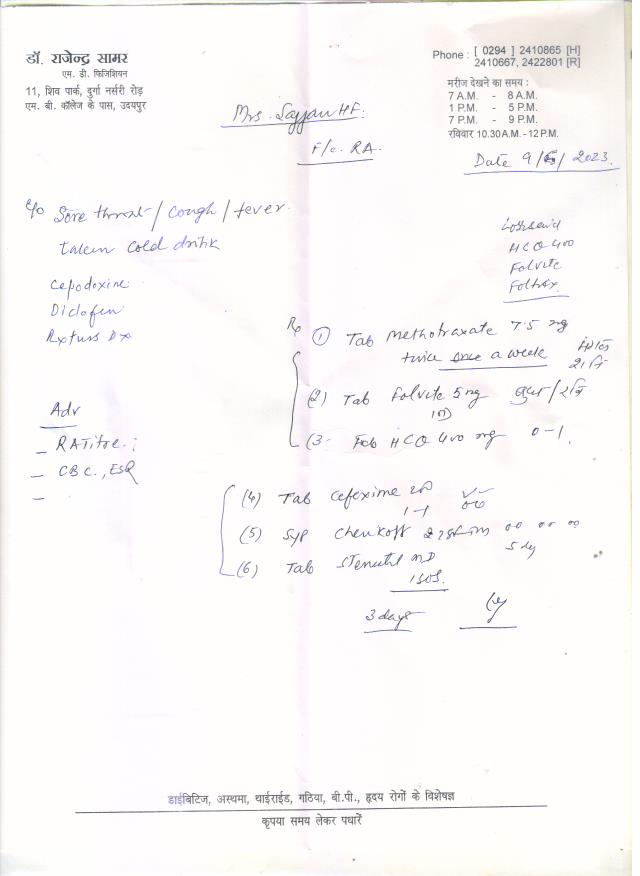 डॉ. राजेन्द्र सामर
एम. डी. फिजिशियन
11, शिव पार्क, दुर्गा नर्सरी रोड़
एम. बी. कॉलेज के पास, उदयपुर
Phone : [ 0294 ] 2410865 [H]
2410667, 2422801 [R]
मरीज देखने का समय :
7 A.M. - 8 A.M.
1 P.M. - 5 P.M.
7 P.M. - 9 P.M.
रविवार 10.30 A.M. - 12 P.M.
Mrs. Sajjan
F/c. RA.
Date 9/ / 2023
c/o Sore throat / Cough / fever.
taken cold drink
Cepodoxine
Diclofen
Rxtuss Dx
HCQ 400
Folvite
Rx
(1) Tab Methotraxate 7.5 mg
twice once a week
(2) Tab Folvite 5 mg
(3) Tab HCQ 400 mg 0-1
Adv
- RA Titre.;
- CBC., ESR
-
(4) Tab Cefexime
1-1
(5) Syp
5 dy
(6) Tab Stemetil MD
1 SOS.
3 days
डाईबिटिज, अस्थमा, थाईराईड, गठिया, बी.पी., हृदय रोगों के विशेषज्ञ
कृपया समय लेकर पधारें